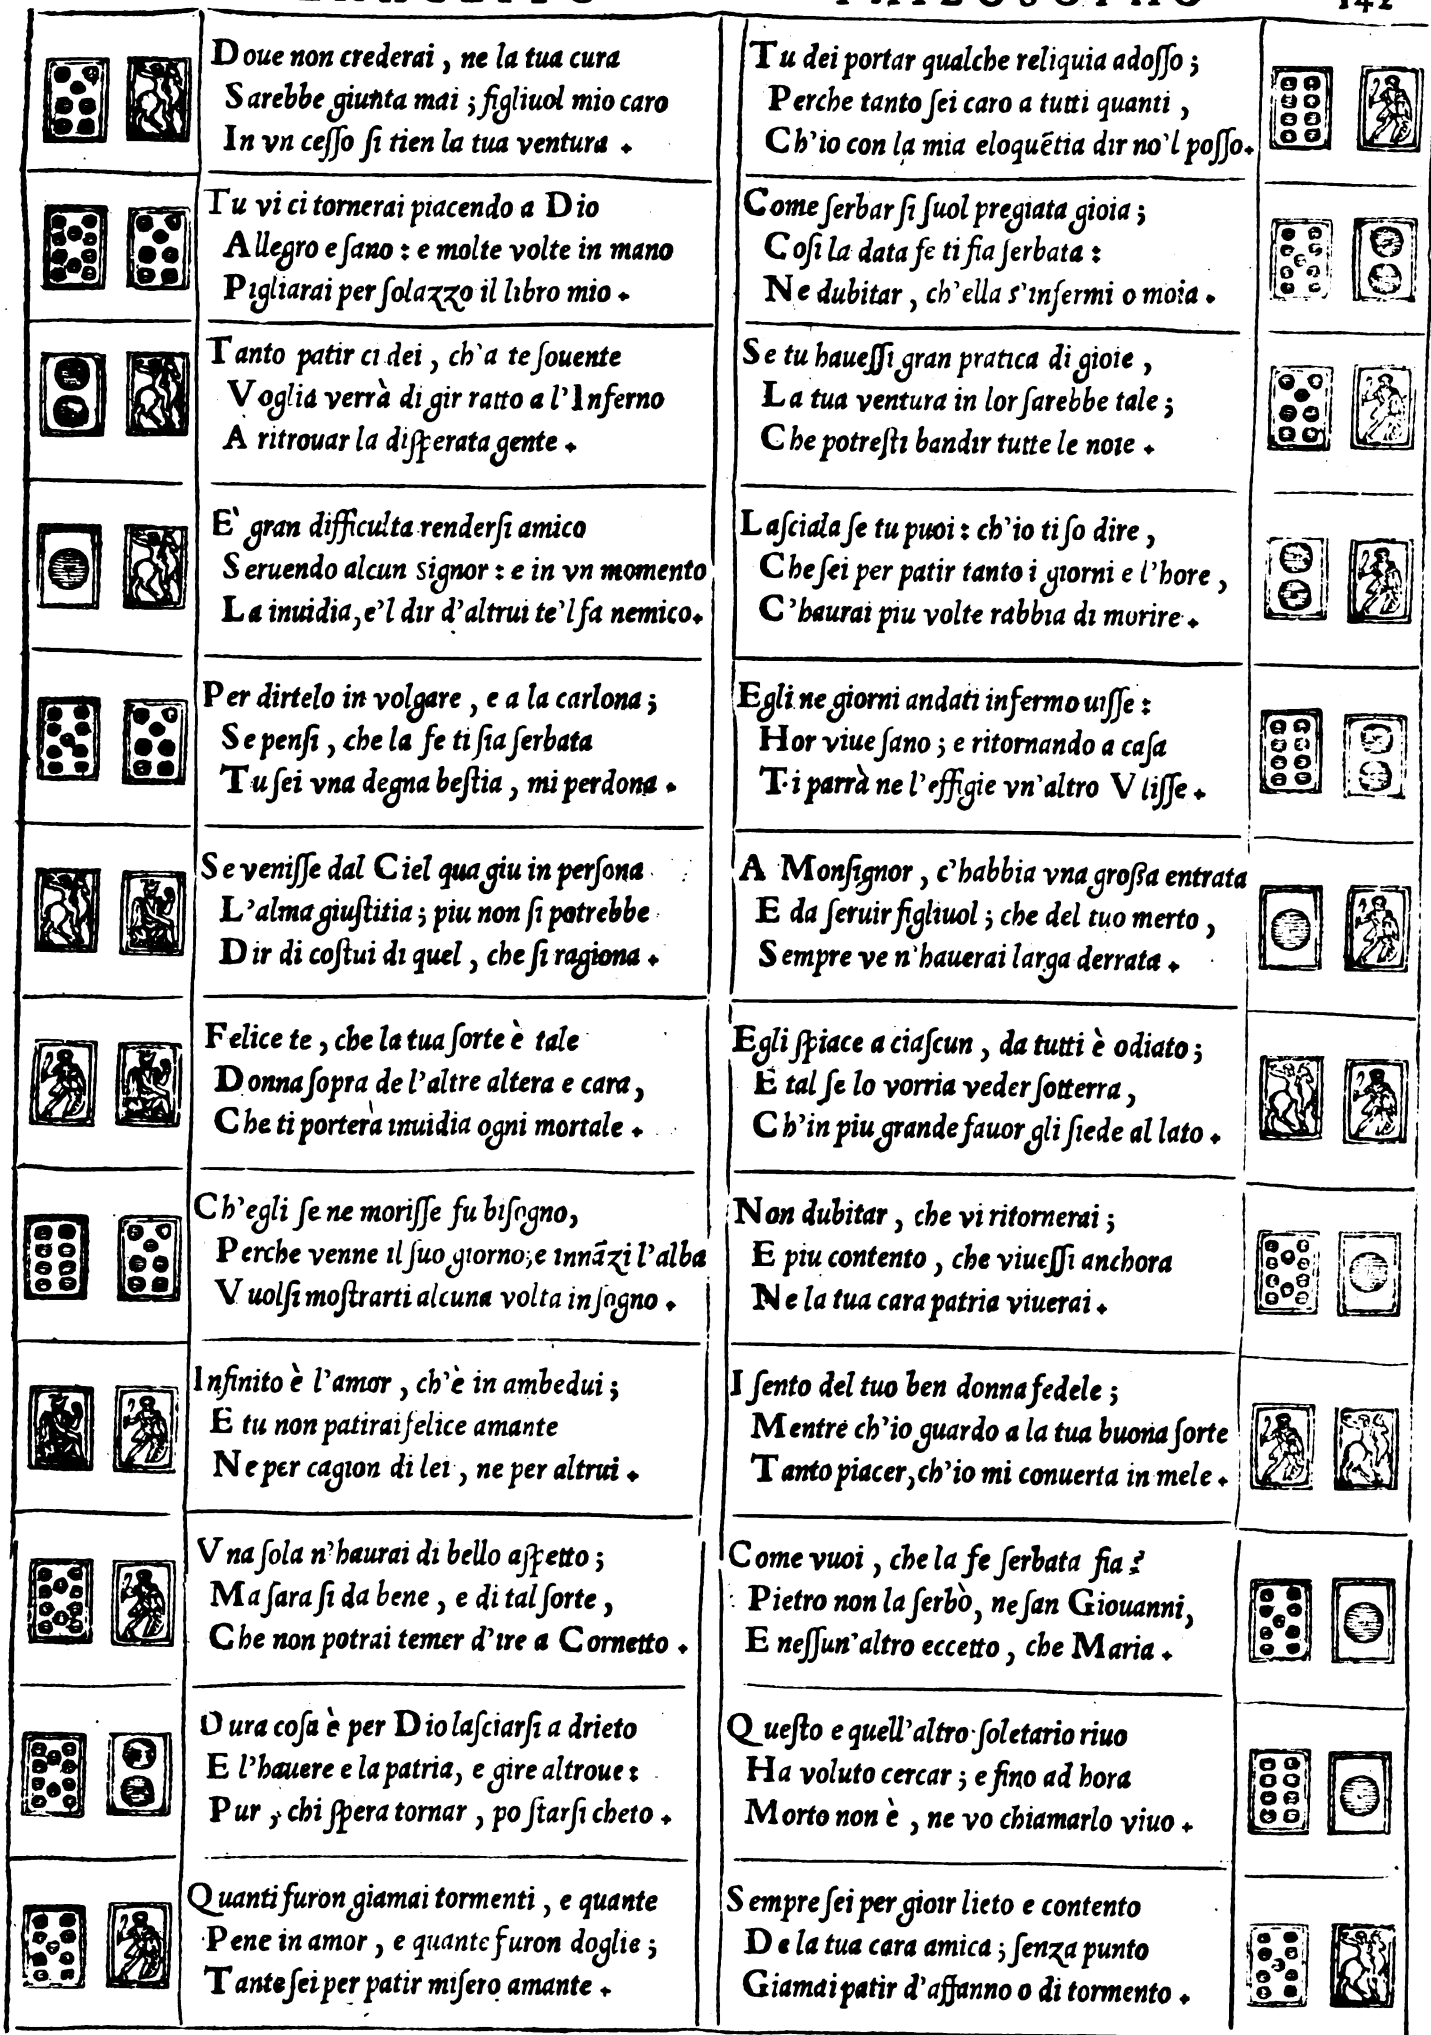 PHILOSOPHO 142
Doue non crederai, ne la tua cura
Sarebbe giunta mai; figliuol mio caro
In vn ceſſo ſi tien la tua ventura.
Tu vi ci tornerai piacendo a Dio
Allegro e ſano: e molte volte in mano
Pigliarai per ſolazzo il libro mio.
Tanto patir ci dei, ch'a te ſouente
Voglia verrà di gir ratto a l'Inferno
A ritrouar la diſperata gente.
E' gran difficulta renderſi amico
Seruendo alcun signor: e in vn momento
La inuidia, e'l dir d'altrui te'l fa nemico.
Per dirtelo in volgare, e a la carlona;
Se penſi, che la fe ti ſia ſerbata
Tu ſei vna degna beſtia, mi perdona.
Se veniſſe dal Ciel qua giu in perſona
L'alma giuſtitia; piu non ſi potrebbe
Dir di coſtui di quel, che ſi ragiona.
Felice te, che la tua ſorte è tale
Donna ſopra de l'altre altera e cara,
Che ti porterà inuidia ogni mortale.
Ch'egli ſe ne moriſſe fu biſogno,
Perche venne il ſuo giorno; e innãzi l'alba
Vuolſi moſtrarti alcuna volta in ſogno.
Infinito è l'amor, ch'è in ambedui;
E tu non patirai felice amante
Ne per cagion di lei, ne per altrui.
Vna ſola n'haurai di bello aſpetto;
Ma ſara ſi da bene, e di tal ſorte,
Che non potrai temer d'ire a Cornetto.
Dura coſa è per Dio laſciarſi a drieto
E l'hauere e la patria, e gire altroue:
Pur, chi ſpera tornar, po ſtarſi cheto.
Quanti furon giamai tormenti, e quante
Pene in amor, e quante furon doglie;
Tante ſei per patir miſero amante.
Tu dei portar qualche reliquia adoſſo;
Perche tanto ſei caro a tutti quanti,
Ch'io con la mia eloquẽtia dir no'l poſſo.
Come ſerbar ſi ſuol pregiata gioia;
Coſi la data fe ti fia ſerbata:
Ne dubitar, ch'ella s'infermi o moia.
Se tu haueſſi gran pratica di gioie,
La tua ventura in lor ſarebbe tale;
Che potreſti bandir tutte le noie.
Laſciala ſe tu puoi: ch'io ti ſo dire,
Che ſei per patir tanto i giorni e l'hore,
C'haurai piu volte rabbia di morire.
Egli ne giorni andati infermo uiſſe:
Hor viue ſano; e ritornando a caſa
Ti parrà ne l'effigie vn'altro Vliſſe.
A Monſignor, c'habbia vna groſſa entrata
E da ſeruir figliuol; che del tuo merto,
Sempre ve n'hauerai larga derrata.
Egli ſpiace a ciaſcun, da tutti è odiato;
E tal ſe lo vorria veder ſotterra,
Ch'in piu grande fauor gli ſiede al lato.
Non dubitar, che vi ritornerai;
E piu contento, che viueſſi anchora
Ne la tua cara patria viuerai.
I ſento del tuo ben donna fedele;
Mentre ch'io guardo a la tua buona ſorte
Tanto piacer, ch'io mi conuerta in mele.
Come vuoi, che la fe ſerbata fia?
Pietro non la ſerbò, ne ſan Giouanni,
E neſſun'altro eccetto, che Maria.
Queſto e quell'altro ſoletario riuo
Ha voluto cercar; e fino ad hora
Morto non è, ne vo chiamarlo viuo.
Sempre ſei per gioir lieto e contento
De la tua cara amica; ſenza punto
Giamai patir d'affanno o di tormento.